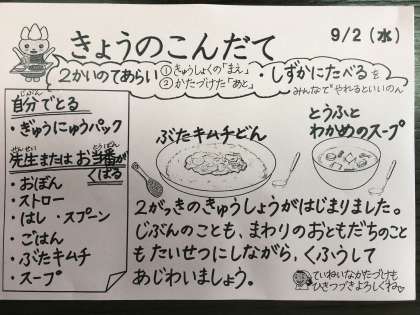 きょうのこんだて
9/2(水)
2かいのてあらい ①きゅうしょくの「まえ」
②かたづけた「あと」
・しずかにたべるを
みんなで やれるといいのん
自分でとる
じぶん
・ぎゅうにゅうパック
先生またはお当番が
せんせい とうばん
くばる
・おぼん
・ストロー
・はし ・スプーン
・ごはん
・ぶたキムチ
・スープ
ぶたキムチどん
とうふと
わかめのスープ
2がっきのきゅうしょうがはじまりました。
じぶんのことも、まわりのおともだちのこと
もたいせつにしながら、くふうして
あじわいましょう。
ていねいなかたづけも
ひきつづきよろしくね